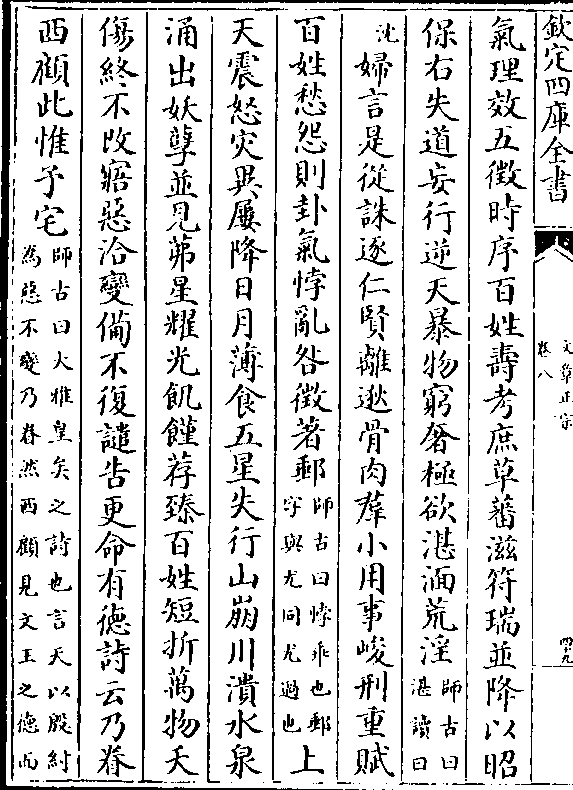 欽定四庫全書
文章正宗
卷八
四十九
氣理效五徵時序百姓壽考庶草蕃滋符瑞並降以昭
保右失道妄行逆天暴物窮奢極欲湛湎荒淫師古曰湛讀曰
沈婦言是從誅逐仁賢離逖骨肉羣小用事峻刑重賦
百姓愁怨則卦氣悖亂咎徵著郵師古曰悖乖也郵字與尤同尤過也上
天震怒灾異屢降日月薄食五星失行山崩川潰水泉
涌出妖孽並見茀星耀光飢饉荐臻百姓短折萬物夭
傷終不改寤惡洽變備不復譴告更命有德詩云乃眷
西顧此惟予宅師古曰大雅皇矣之詩也言天以殷紂為惡不變乃眷然西顧見文王之德而